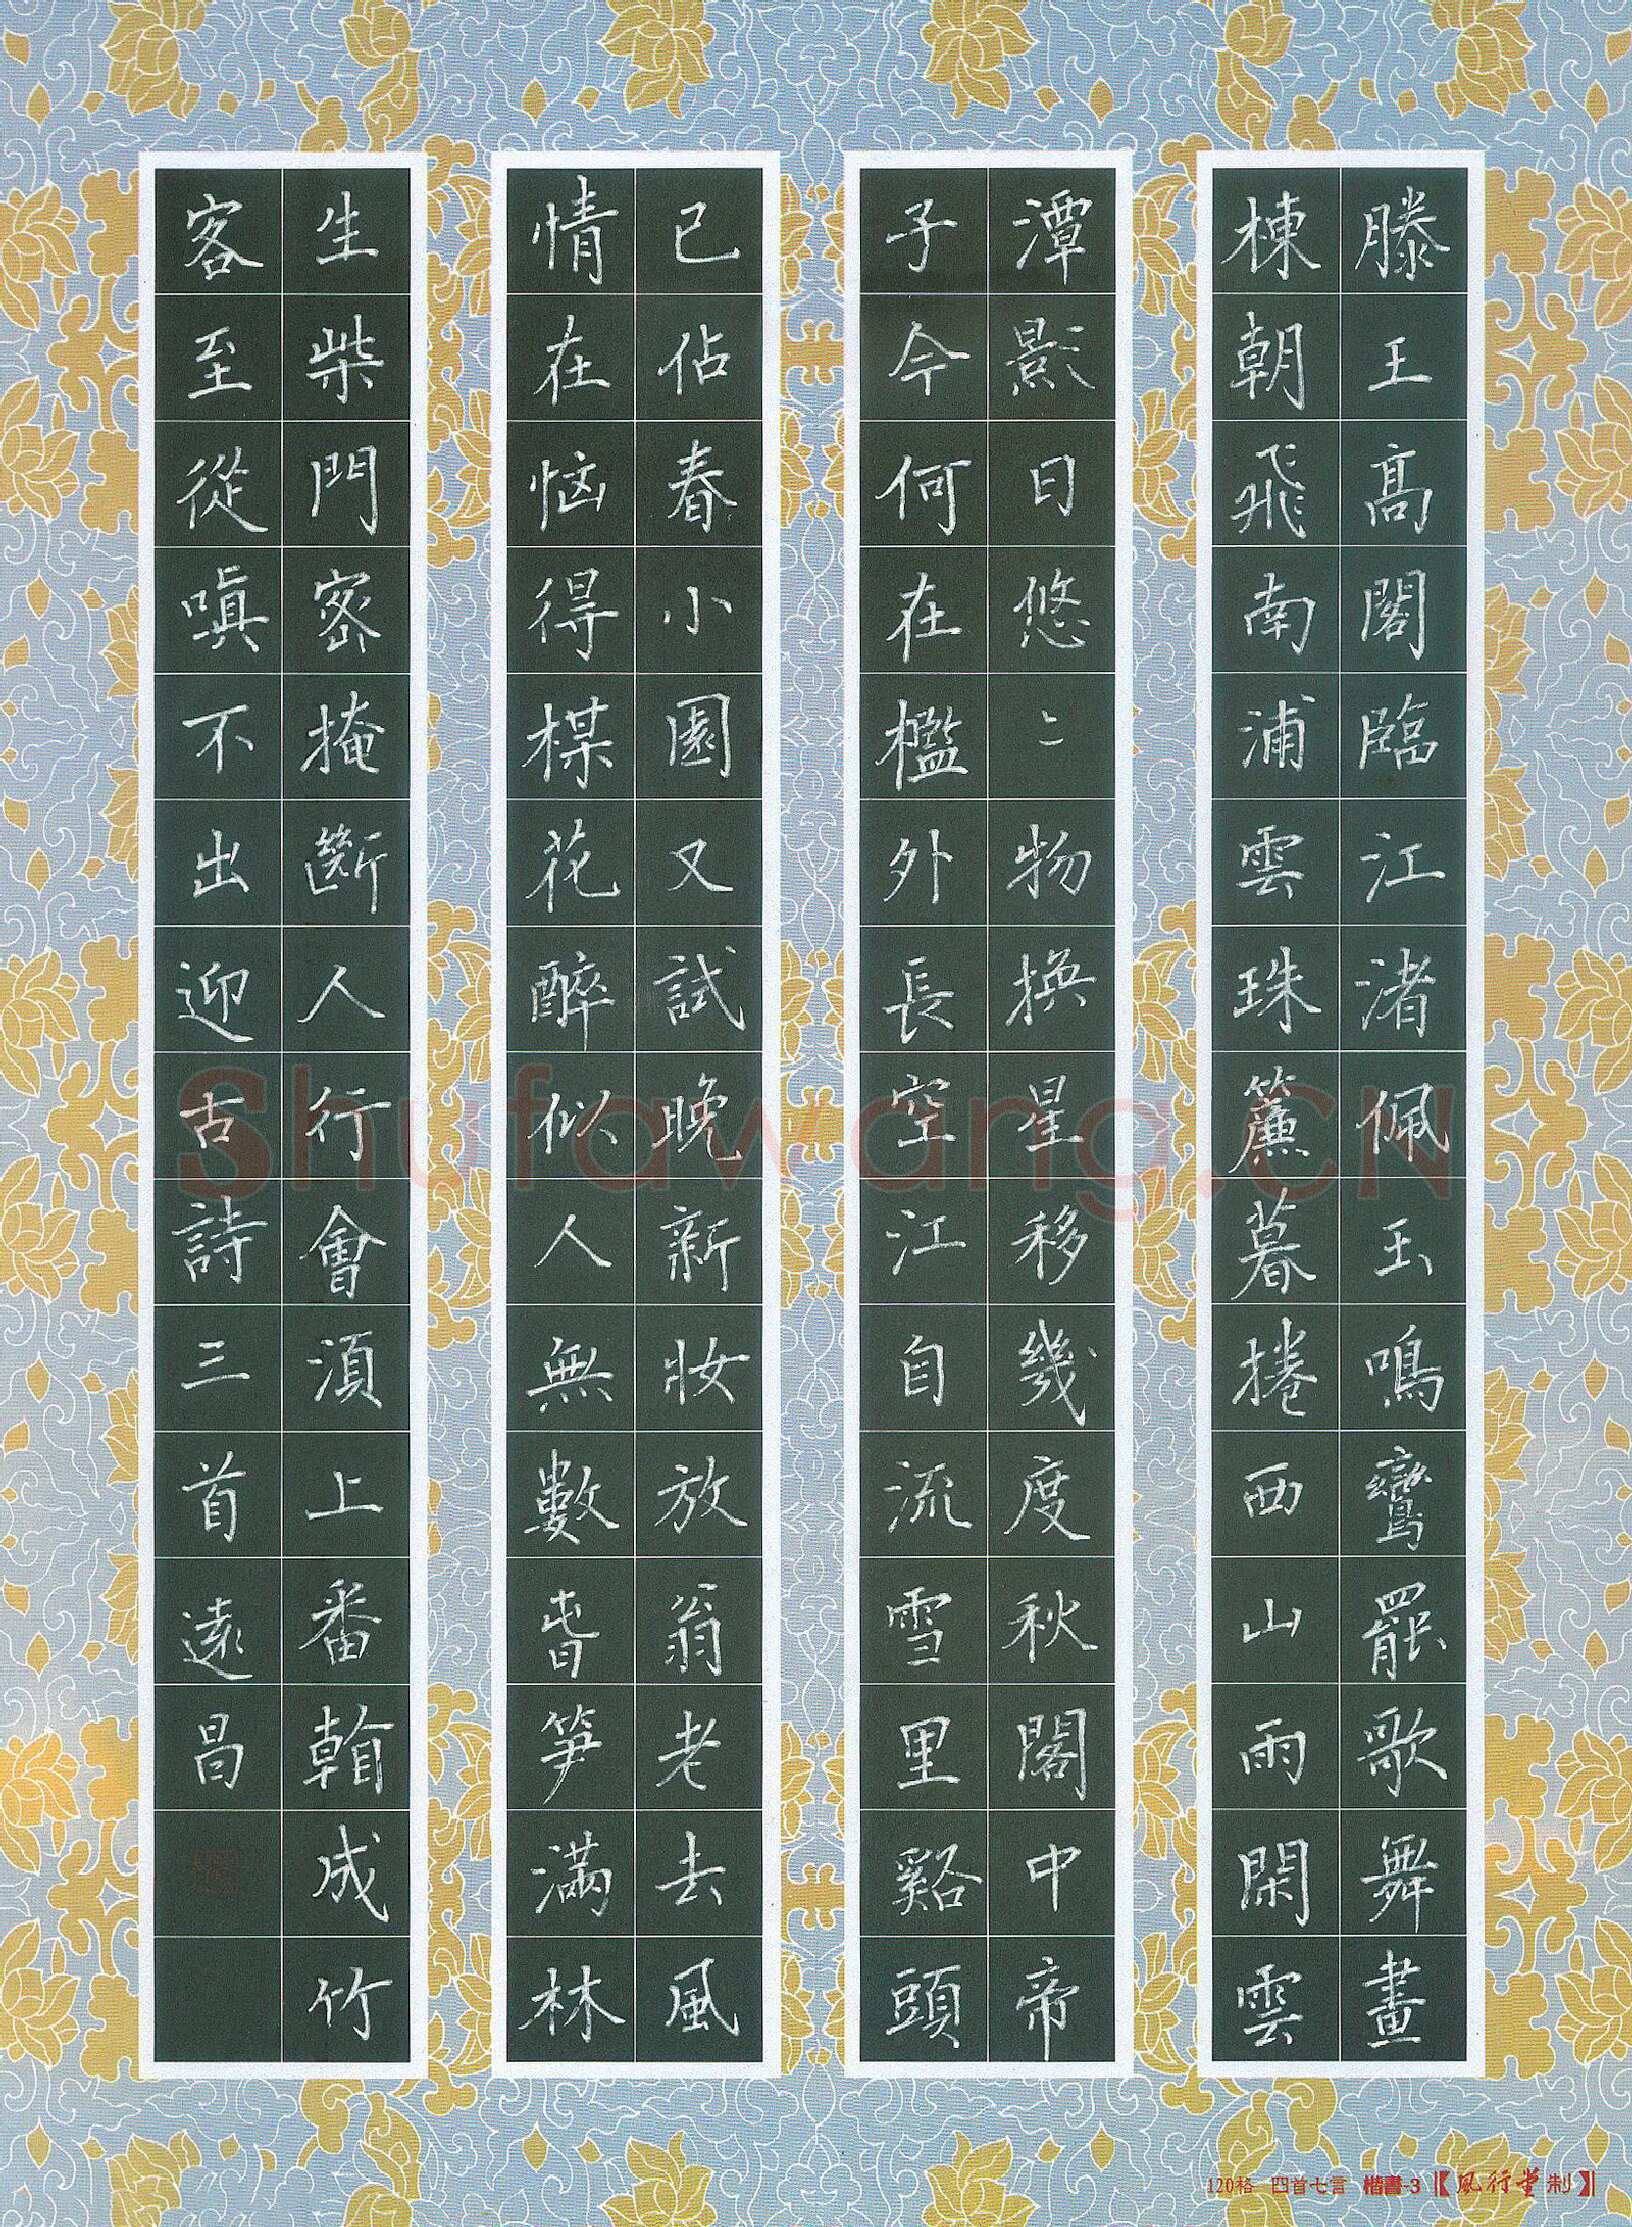 滕王髙閣臨江渚佩玉鳴鸞罷歌舞畫
棟朝飛南浦雲珠簾暮捲西山雨閑雲
潭影日悠〻物換星移幾度秋閣中帝
子今何在檻外長空江自流雪里谿頭
已佔春小園又試晚新妝放翁老去風
情在恼得楳花醉似人無數旾笋滿林
生柴門密掩斷人行會湏上番翰成竹
客至從嗔不出迎古詩三首遠昌
Shufawang.CN
120格 四首七言 楷書-3【風行堂制】